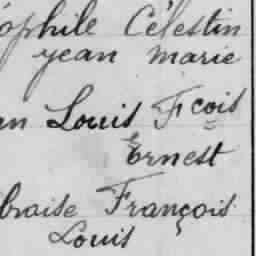 ophile Célestin
yean Marie
an Louis Fcois
Ernest
braise François
Louis